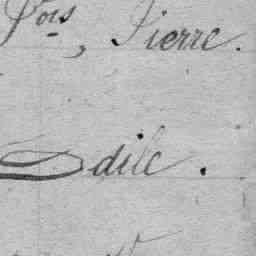 Fois, Pierre.
Odile.